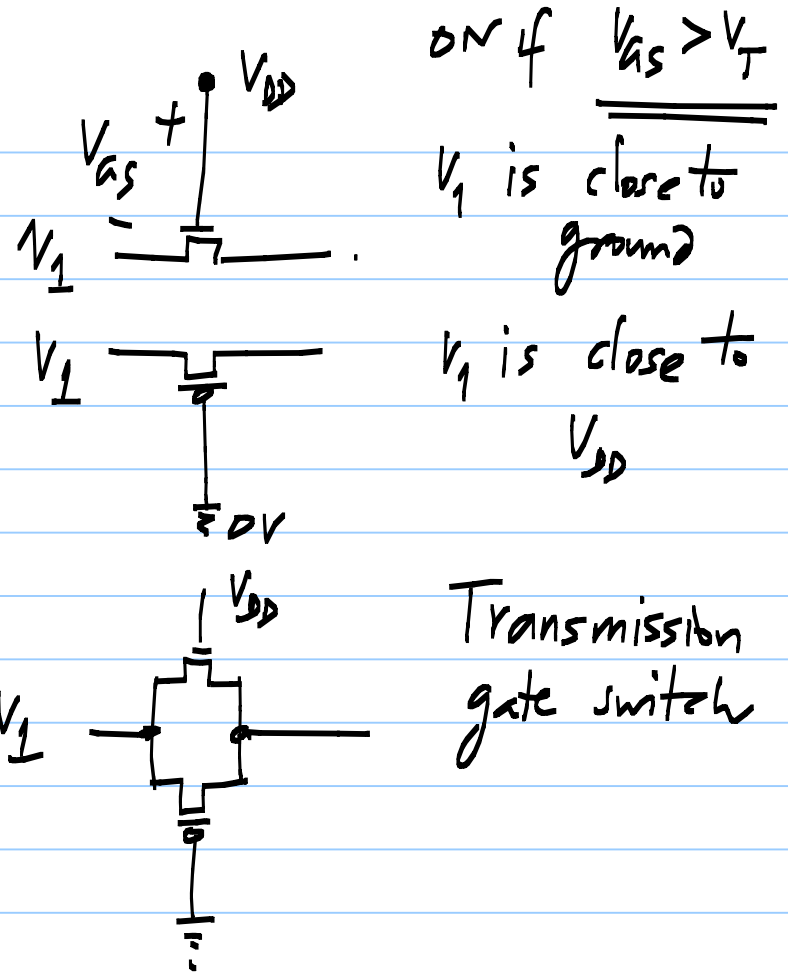 ON if V_GS > V_T
V_DD
+
V_GS
-
V_1 is close to
ground
V_1
V_1
V_1 is close to
V_DD
0V
V_DD
Transmission
gate switch
V_1